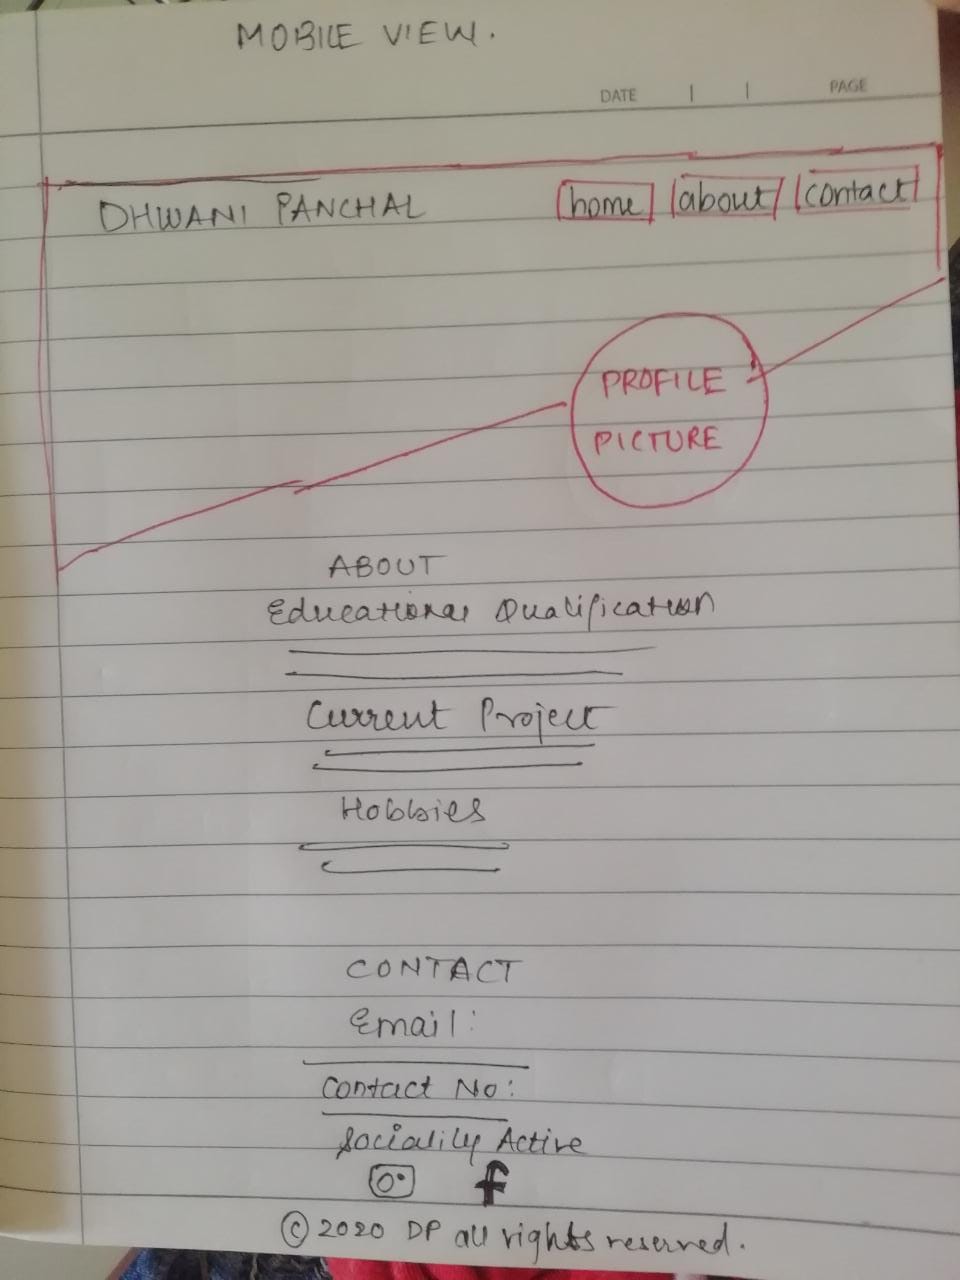 MOBILE VIEW.
DATE | | PAGE
DHWANI PANCHAL home about contact
PROFILE
PICTURE
ABOUT
Educational Qualification
Current Project
Hobbies
CONTACT
Email:
Contact No:
Socialily Active
f
© 2020 DP all rights reserved.